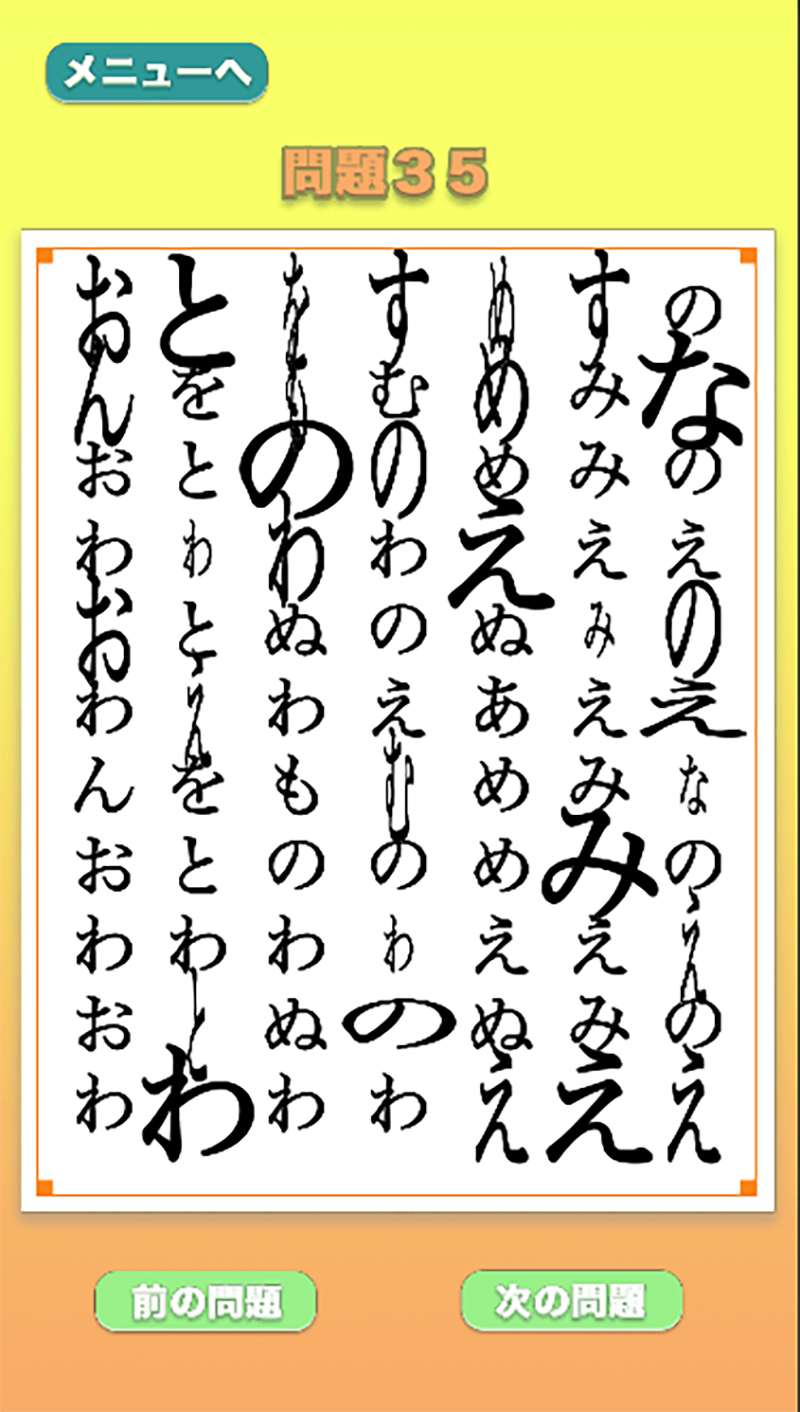 メニューへ
問題３５
のなのえのえなのえのえ
すみみえみえみみえみえ
めめえぬあめめえぬえ
すむのわのえむのわのわ
のわぬわものわぬわ
とをとわとえをとわとわ
おんおわおわんおわおわ
前の問題
次の問題